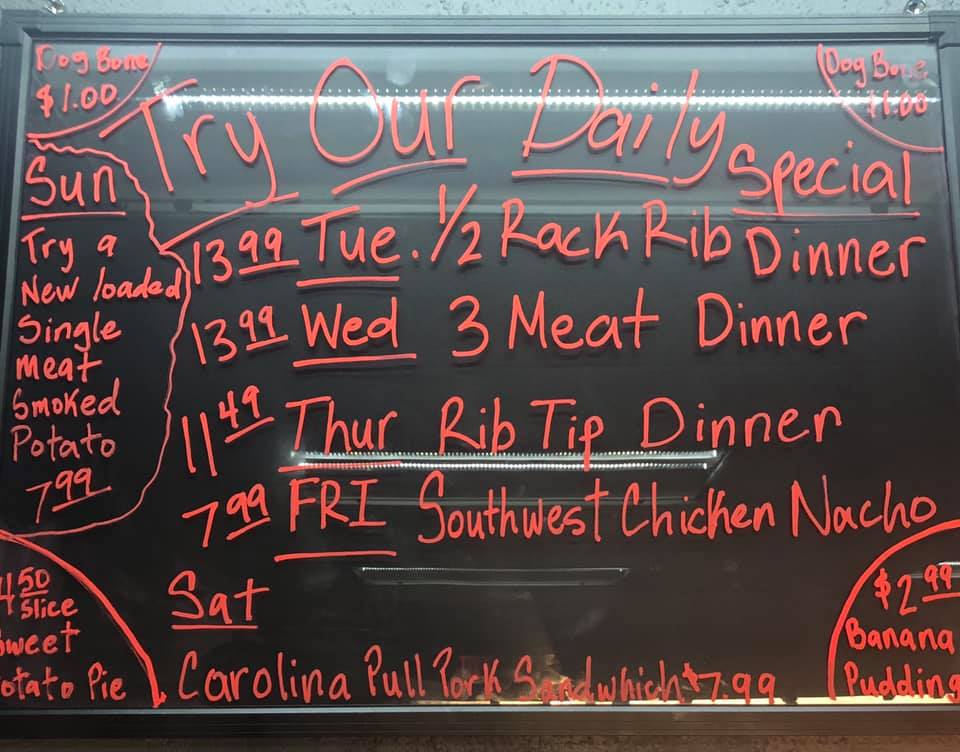 Dog Bone
$1.00
Try Our Daily Special
Dog Bone
$1.00
Sun
Try a
New loaded
Single
meat
Smoked
Potato
7.99
13.99 Tue. 1/2 Rack Rib Dinner
13.99 Wed 3 Meat Dinner
11.49 Thur Rib Tip Dinner
7.99 FRI Southwest Chicken Nacho
Sat
Carolina Pull Pork Sandwhich $7.99
4.50
Slice
Sweet
Potato Pie
$2.99
Banana
Pudding